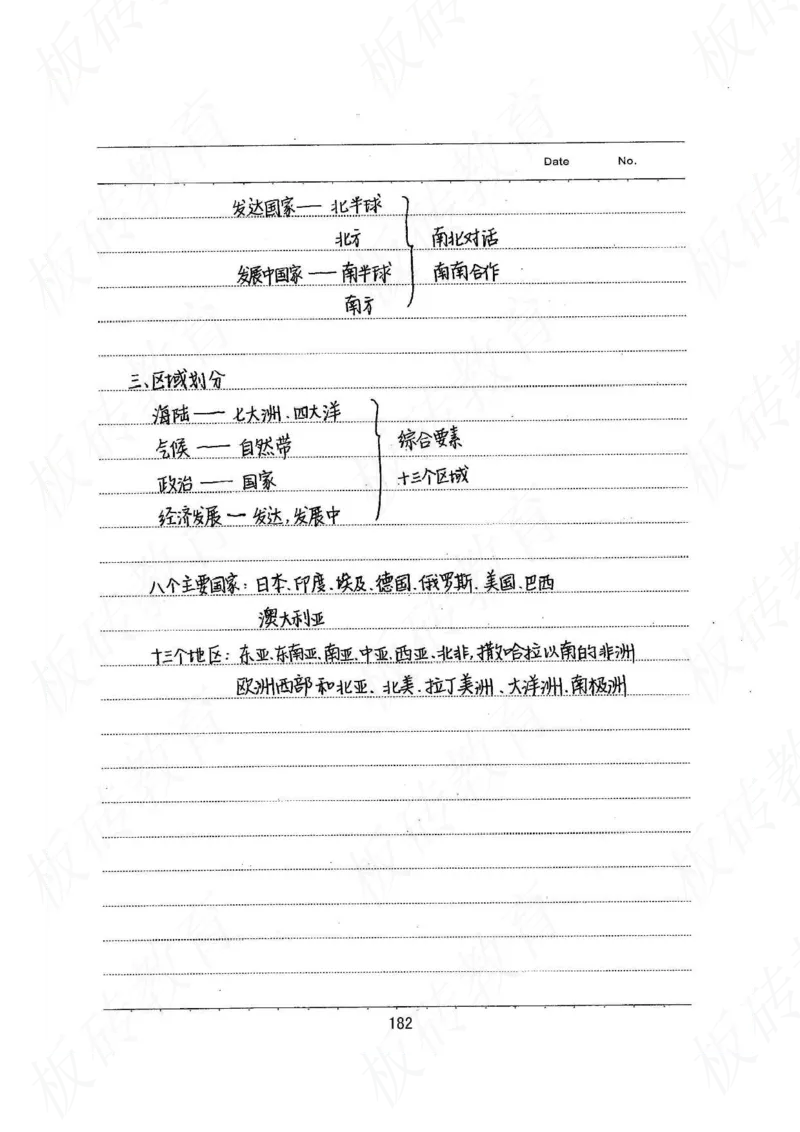 Date No.
发达国家——北半球
北方
南北对话
发展中国家——南半球
南南合作
南方
三、区域划分
海陆——七大洲、四大洋
气候——自然带
综合要素
政治——国家
十三个区域
经济发展—发达,发展中
八个主要国家:日本、印度、埃及、德国、俄罗斯、美国、巴西
澳大利亚
十三个地区:东亚、东南亚、南亚、中亚、西亚、北非,撒哈拉以南的非洲
欧洲西部和北亚、北美、拉丁美洲、大洋洲、南极洲
182
板砖教育